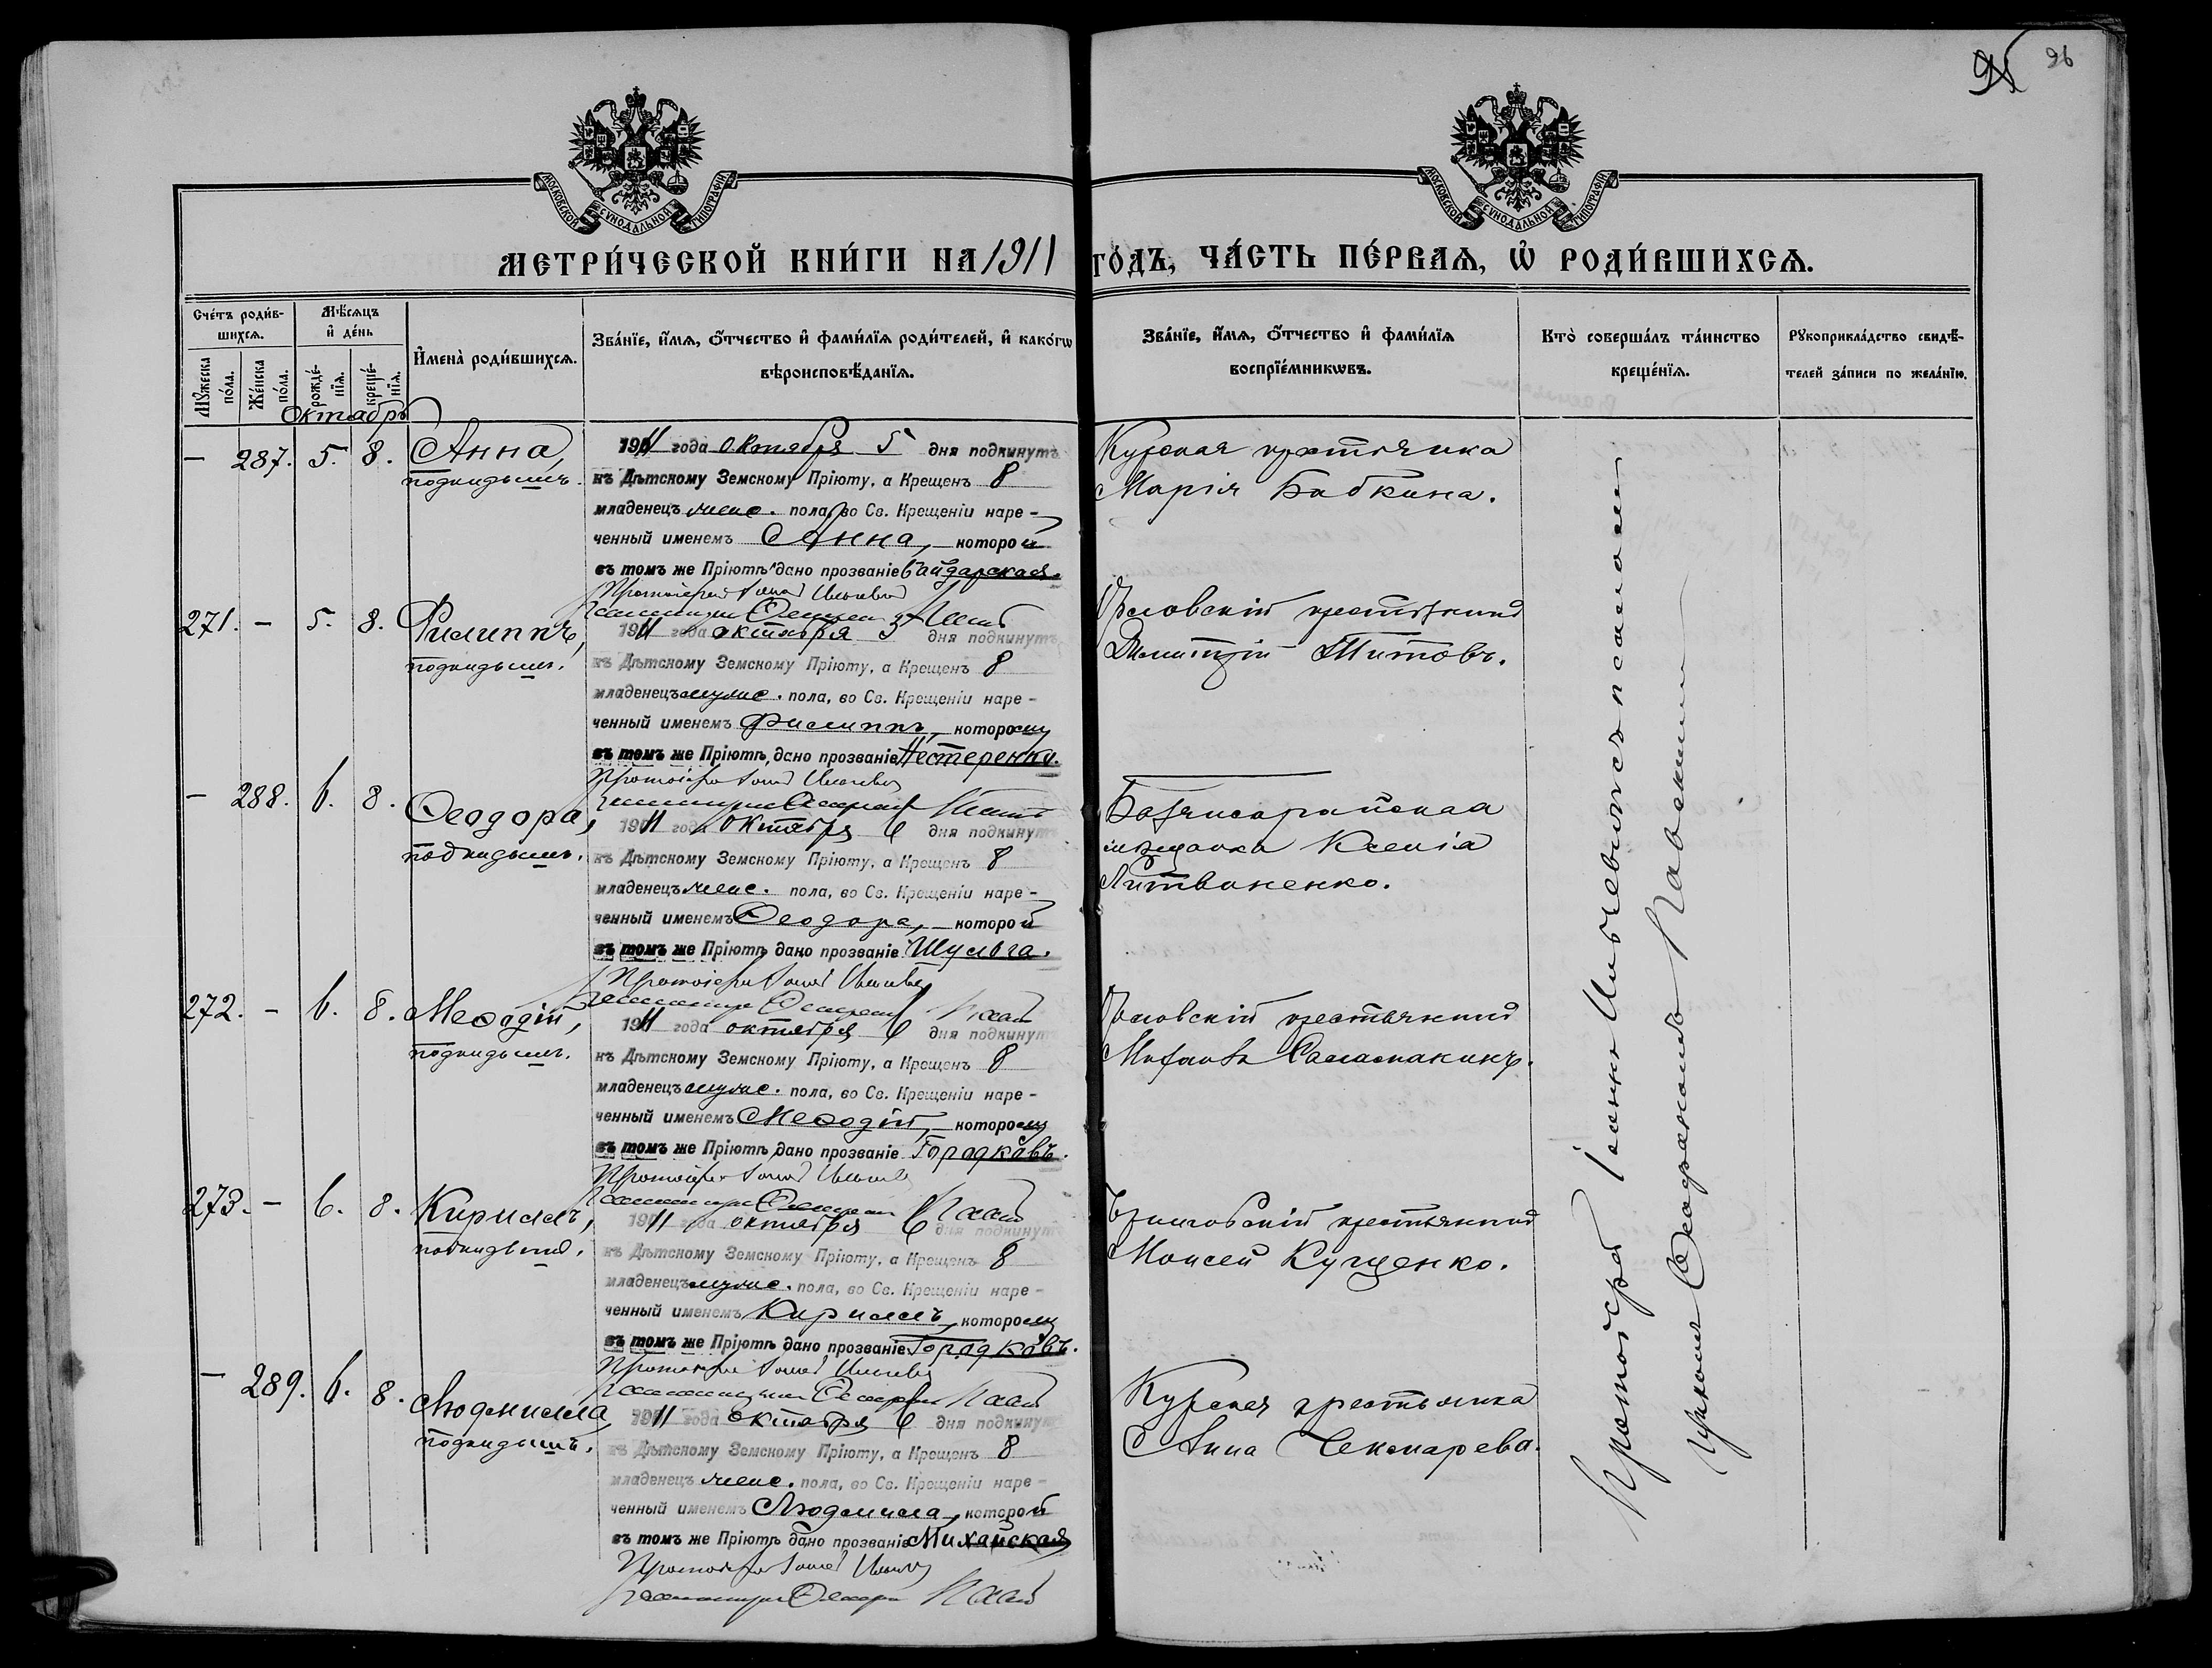 96
МОСКОВСКОЙ СѴНОДАЛЬНОЙ ТИПОГРАФІИ
МОСКОВСКОЙ СѴНОДАЛЬНОЙ ТИПОГРАФІИ
МЕТРИ́ЧЕСКОЙ КНИ́ГИ НА 1911 ГО́ДЪ, ЧА́СТЬ ПЕ́РВАѦ, Ѡ҆ РОДИ́ВШИХСѦ.
Сче́тъ роди́в-
шихсѧ.
Мꙋжеска по́ла.
Же́нска по́ла.
Мѣ́сѧцъ
и҆ де́нь
рожде́-нїѧ.
креще́-нїѧ.
И҆мена̀ роди́вшихсѧ.
Зва́нїе, и҆́мѧ, ѻ҆́тчество и҆ фами́лїѧ роди́телей, и҆ како́гѡ
вѣроисповѣ́данїѧ.
Зва́нїе, и҆́мѧ, ѻ҆́тчество и҆ фами́лїѧ
воспрїе́мникѡвъ.
Кто̀ соверша́лъ та́инство
креще́нїѧ.
Рꙋкоприкла́дство свидѣ́-
телей за́писи по жела́нїю.
Октябрь
– 287. 5. 8. Анна,
подкидышъ.
1911 года октября 5 дня подкинутъ
къ Дѣтскому Земскому Пріюту, а Крещенъ 8
младенецъ женс. пола, во Св. Крещеніи наре-
ченный именемъ Анна, которой
въ томъ же Пріютѣ дано прозваніе Байдарская.
Курская крестьянка
Марія Бабкина.
271. – 5. 8. Филиппъ,
подкидышъ.
1911 года октября 5 дня подкинутъ
къ Дѣтскому Земскому Пріюту, а Крещенъ 8
младенецъ мужс. пола, во Св. Крещеніи наре-
ченный именемъ Филиппъ, которому
въ томъ же Пріютѣ дано прозваніе Нестеренко.
Орловскій крестьянинъ
Димитрій Титовъ.
– 288. 6. 8. Ѳеодора,
подкидышъ.
1911 года октября 6 дня подкинутъ
къ Дѣтскому Земскому Пріюту, а Крещенъ 8
младенецъ женс. пола, во Св. Крещеніи наре-
ченный именемъ Ѳеодора, которой
въ томъ же Пріютѣ дано прозваніе Шульга.
Бахчисарайская
мѣщанка Ксенія
Литвиненко.
272. – 6. 8. Меѳодій,
подкидышъ.
1911 года октября 6 дня подкинутъ
къ Дѣтскому Земскому Пріюту, а Крещенъ 8
младенецъ мужс. пола, во Св. Крещеніи наре-
ченный именемъ Меѳодій, которому
въ томъ же Пріютѣ дано прозваніе Городковъ.
Орловскій крестьянинъ
273. – 6. 8. Кириллъ,
подкидышъ.
1911 года октября 6 дня подкинутъ
къ Дѣтскому Земскому Пріюту, а Крещенъ 8
младенецъ мужс. пола, во Св. Крещеніи наре-
ченный именемъ Кириллъ, которому
въ томъ же Пріютѣ дано прозваніе Городковъ.
крестьянинъ
Моисей Кущенко.
– 289. 6. 8. Людмилла,
подкидышъ.
1911 года октября 6 дня подкинутъ
къ Дѣтскому Земскому Пріюту, а Крещенъ 8
младенецъ женс. пола, во Св. Крещеніи наре-
ченный именемъ Людмила, которой
въ томъ же Пріютѣ дано прозваніе Михайская
Курская крестьянка
Анна Чекмарева.
Протоіерей Іоаннъ съ псаломщ